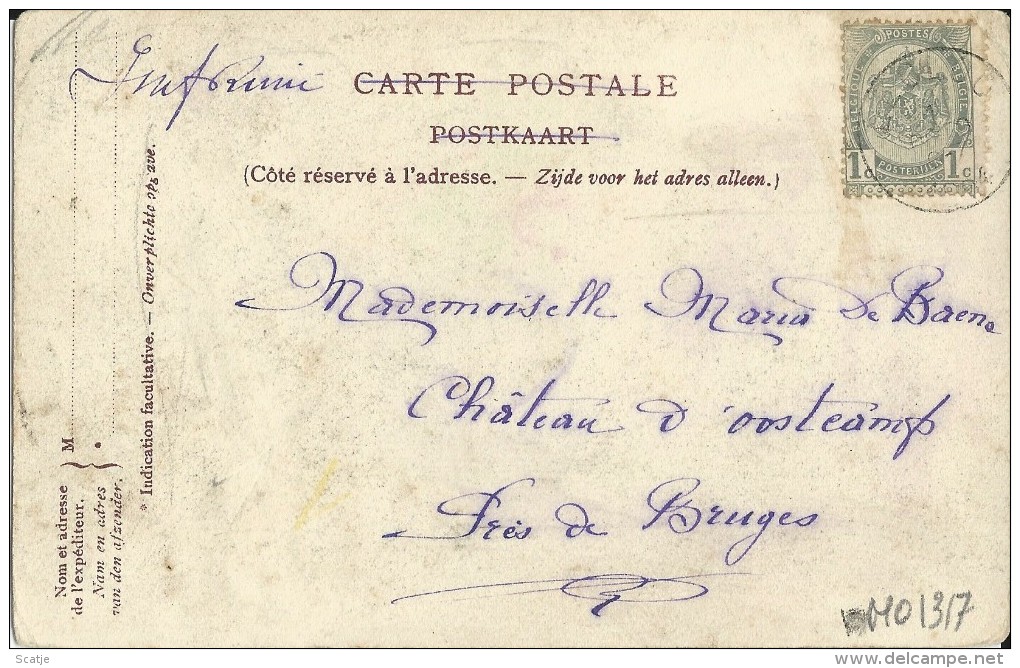 Imprimé
CARTE POSTALE
POSTKAART
(Côté réservé à l'adresse. — Zijde voor het adres alleen.)
POSTES
BELGIQUE BELGIË
POSTERIJEN
1c 1c
Mademoiselle Maria De Baene
Château d'oostcamp
Près de Bruges
* Indication facultative. — Onverplichte opgave.
M
Nom et adresse
de l'expéditeur.
Nam en adres
van den afzender.
M0/3/7
Scatje
delcampe.net